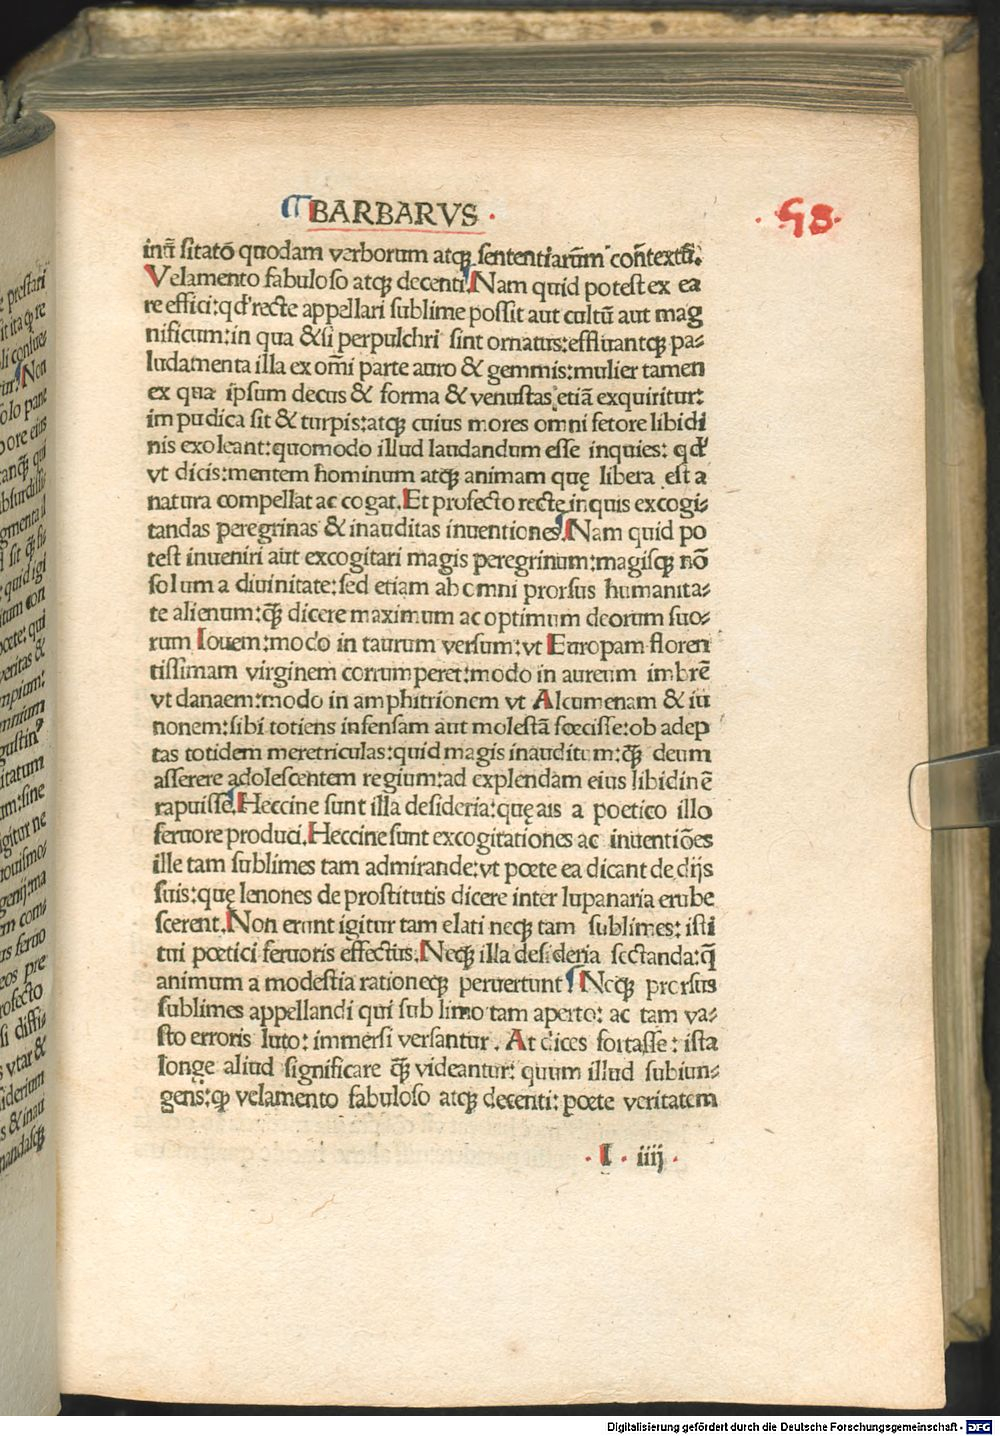 BARBARVS .
. 58 .
inũ sitatõ quodam verborum atqꝫ sententiarũm con̄textũ.
Velamento fabuloso atqꝫ decenti. Nam quid potest ex ea
re effici: qd' recte appellari sublime possit aut cultũ aut mag
nificum: in qua & si perpulchri sint ornatus: effluantqꝫ pa-
ludamenta illa ex om̃i parte auro & gemmis: mulier tamen
ex qua ipsum decus & forma & venustas etiã exquiritur:
impudica sit & turpis: atqꝫ cuius mores omni fetore libidi
nis exoleant: quomodo illud laudandum esse inquies: qd'
vt dicis: mentem hominum atqꝫ animam quę libera est a
natura compellat ac cogat. Et profecto recte inquis excogi-
tandas peregrinas & inauditas inuentiones. Nam quid po
test inueniri aut excogitari magis peregrinum: magisqꝫ nõ
solum a diuinitate: sed etiam ab omni prorsus humanita-
te alienum: q̃ꝫ dicere maximum ac optimum deorum suo-
rum Iouem: modo in taurum versum: vt Europam floren
tissimam virginem corrumperet: modo in aureum imbrẽ
vt danaem: modo in amphitrionem vt Alcumenam & iu
nonem: sibi totiens infensam aut molestã fœcisse: ob adep
tas totidem meretriculas: quid magis inauditum: q̃ꝫ deum
asserere adolescentem regium: ad explendam eius libidinẽ
rapuisse. Heccine sunt illa desideria: quę ais a poetico illo
feruore produci. Heccine sunt excogitationes ac inuentiões
ille tam sublimes tam admirande: vt pœte ea dicant de dijs
suis: quę lenones de prostitutis dicere inter lupanaria erube
scerent. Non erunt igitur tam elati neqꝫ tam sublimes: isti
tui pœtici feruoris effectus. Neqꝫ illa desideria sectanda: q̃
animum a modestia rationeqꝫ peruertunt Neqꝫ prorsus
sublimes appellandi qui sub limo tam aperto: ac tam va-
sto erroris luto: immersi versantur. At dices fortasse: ista
longe aliud significare q̃ꝫ videantur: quum illud subiun-
gens: ꝙ velamento fabuloso atqꝫ decenti: pœte veritatem
. I . iiij .
Digitalisierung gefördert durch die Deutsche Forschungsgemeinschaft - DFG